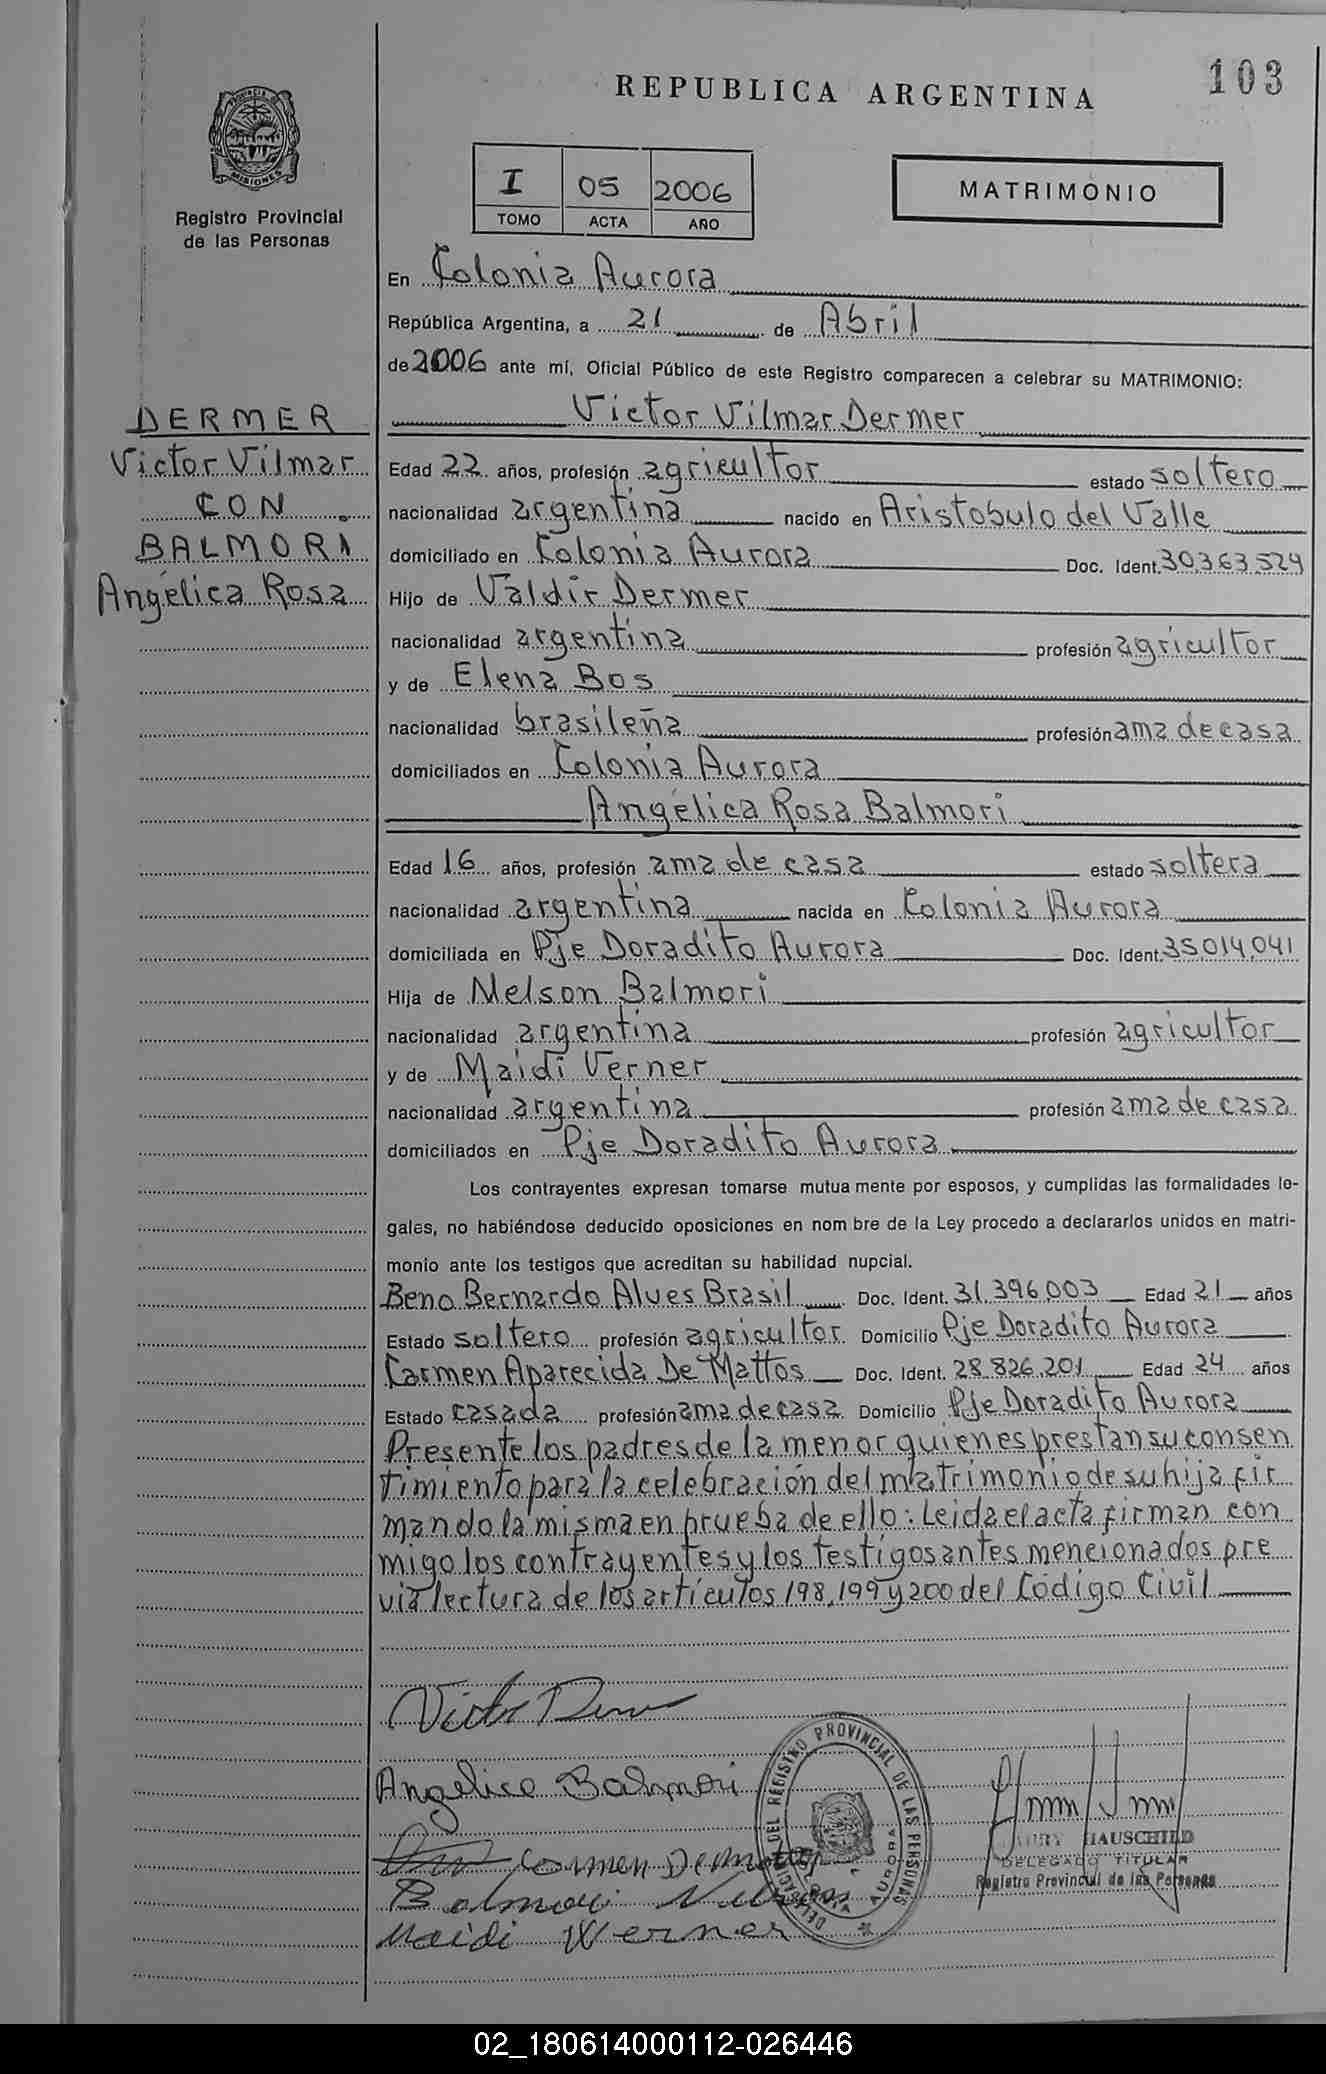 103
REPUBLICA ARGENTINA
PROVINCIA DE
MISIONES
Registro Provincial
de las Personas
I 05 2006
TOMO ACTA AÑO
MATRIMONIO
En Colonia Aurora
República Argentina, a 21 de Abril
de 2006 ante mí, Oficial Público de este Registro comparecen a celebrar su MATRIMONIO:
DERMER
Victor Vilmar
CON
BALMORI
Angélica Rosa
Victor Vilmar Dermer
Edad 22 años, profesión agricultor estado soltero
nacionalidad argentina nacido en Aristobulo del Valle
domiciliado en Colonia Aurora Doc. Ident. 30.363.524
Hijo de Valdir Dermer
nacionalidad argentina profesión agricultor
y de Elena Bos
nacionalidad brasileña profesión ama de casa
domiciliados en Colonia Aurora
Angélica Rosa Balmori
Edad 16 años, profesión ama de casa estado soltera
nacionalidad argentina nacida en Colonia Aurora
domiciliada en Pje Doradito Aurora Doc. Ident. 35.014.041
Hija de Nelson Balmori
nacionalidad argentina profesión agricultor
y de Maidi Verner
nacionalidad argentina profesión ama de casa
domiciliados en Pje Doradito Aurora
Los contrayentes expresan tomarse mutua mente por esposos, y cumplidas las formalidades le-
gales, no habiéndose deducido oposiciones en nom bre de la Ley procedo a declararlos unidos en matri-
monio ante los testigos que acreditan su habilidad nupcial.
Beno Bernardo Alves Brasil Doc. Ident. 31.396.003 Edad 21 años
Estado soltero profesión agricultor Domicilio Pje Doradito Aurora
Carmen Aparecida De Mattos Doc. Ident. 28.826.201 Edad 24 años
Estado casada profesión ama de casa Domicilio Pje Doradito Aurora
Presente los padres de la menor quienes prestan su consen
timiento para la celebración del matrimonio de su hija fir
mando la misma en prueba de ello: Leida el acta firman con
migo los contrayentes y los testigos antes mencionados pre
via lectura de los artículos 198, 199 y 200 del Código Civil
Victor
Angelica Balmori
Carmen
Balmori
Maidi Werner
DEL REGISTRO PROVINCIAL DE LAS PERSONAS
AURORA
HAUSCHILD
DELEGADO TITULAR
Registro Provincial de las Personas
02_180614000112-026446